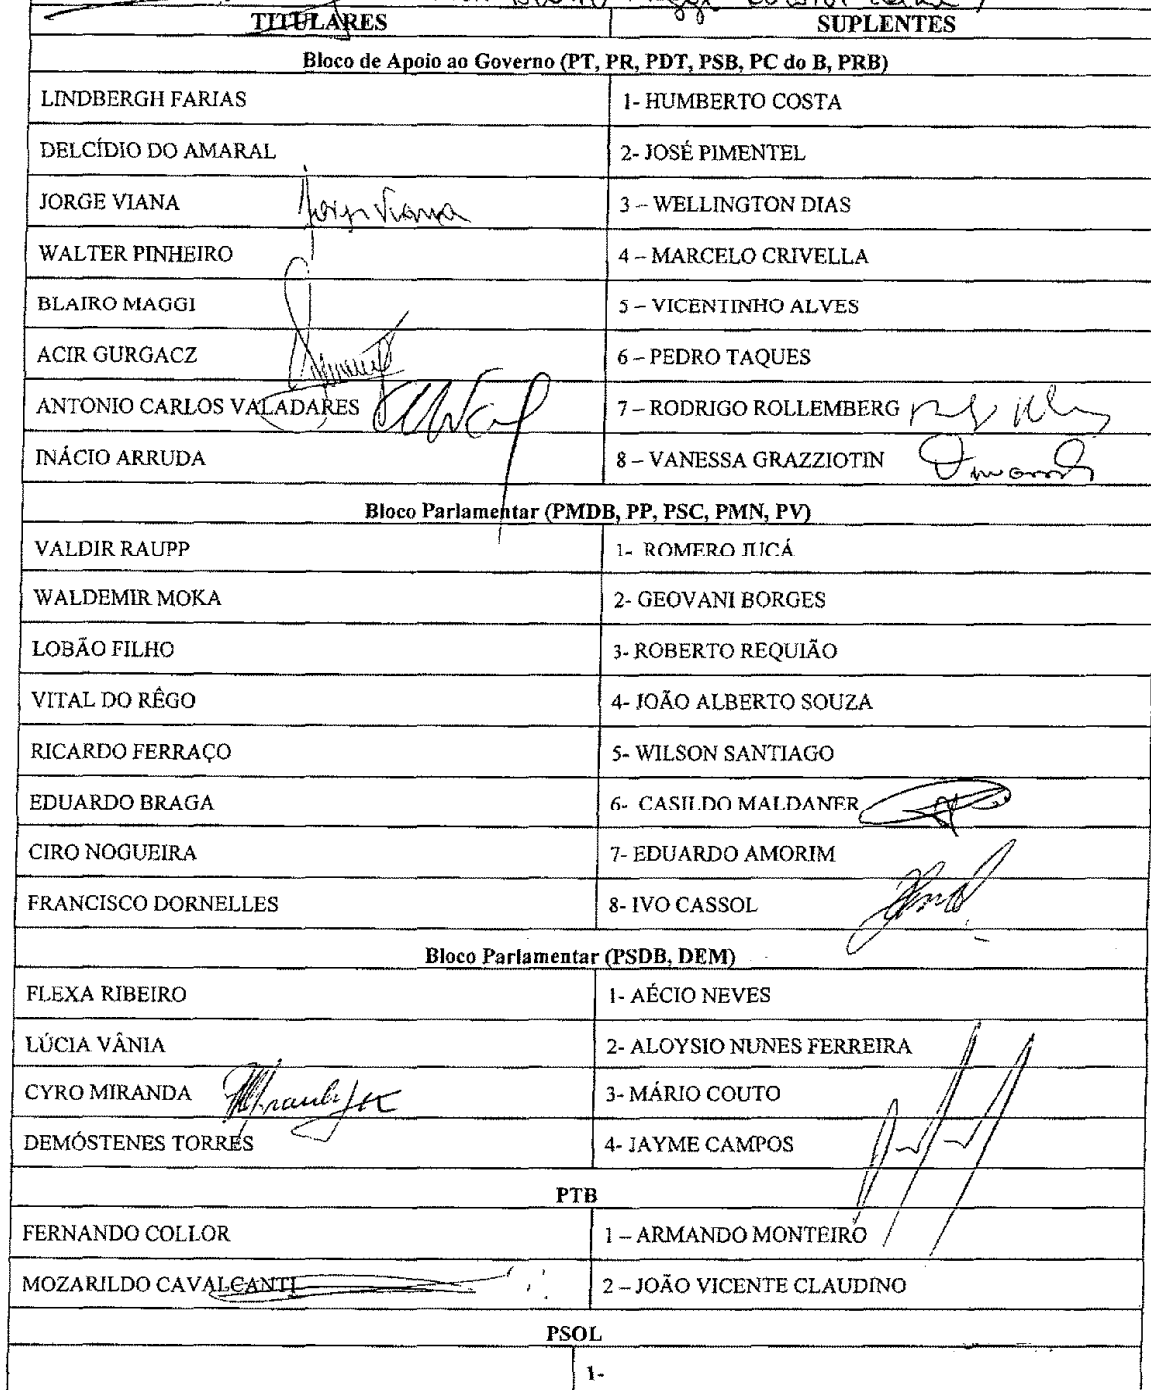 TITULARES SUPLENTES
Bloco de Apoio ao Governo (PT, PR, PDT, PSB, PC do B, PRB)
LINDBERGH FARIAS 1- HUMBERTO COSTA
DELCÍDIO DO AMARAL 2- JOSÉ PIMENTEL
JORGE VIANA Jorge Viana 3 – WELLINGTON DIAS
WALTER PINHEIRO 4 – MARCELO CRIVELLA
BLAIRO MAGGI 5 – VICENTINHO ALVES
ACIR GURGACZ 6 – PEDRO TAQUES
ANTONIO CARLOS VALADARES 7 – RODRIGO ROLLEMBERG
INÁCIO ARRUDA 8 – VANESSA GRAZZIOTIN
Bloco Parlamentar (PMDB, PP, PSC, PMN, PV)
VALDIR RAUPP 1- ROMERO JUCÁ
WALDEMIR MOKA 2- GEOVANI BORGES
LOBÃO FILHO 3- ROBERTO REQUIÃO
VITAL DO RÊGO 4- JOÃO ALBERTO SOUZA
RICARDO FERRAÇO 5- WILSON SANTIAGO
EDUARDO BRAGA 6- CASILDO MALDANER
CIRO NOGUEIRA 7- EDUARDO AMORIM
FRANCISCO DORNELLES 8- IVO CASSOL
Bloco Parlamentar (PSDB, DEM)
FLEXA RIBEIRO 1- AÉCIO NEVES
LÚCIA VÂNIA 2- ALOYSIO NUNES FERREIRA
CYRO MIRANDA 3- MÁRIO COUTO
DEMÓSTENES TORRES 4- JAYME CAMPOS
PTB
FERNANDO COLLOR 1 – ARMANDO MONTEIRO
MOZARILDO CAVALCANTI 2 – JOÃO VICENTE CLAUDINO
PSOL
1-